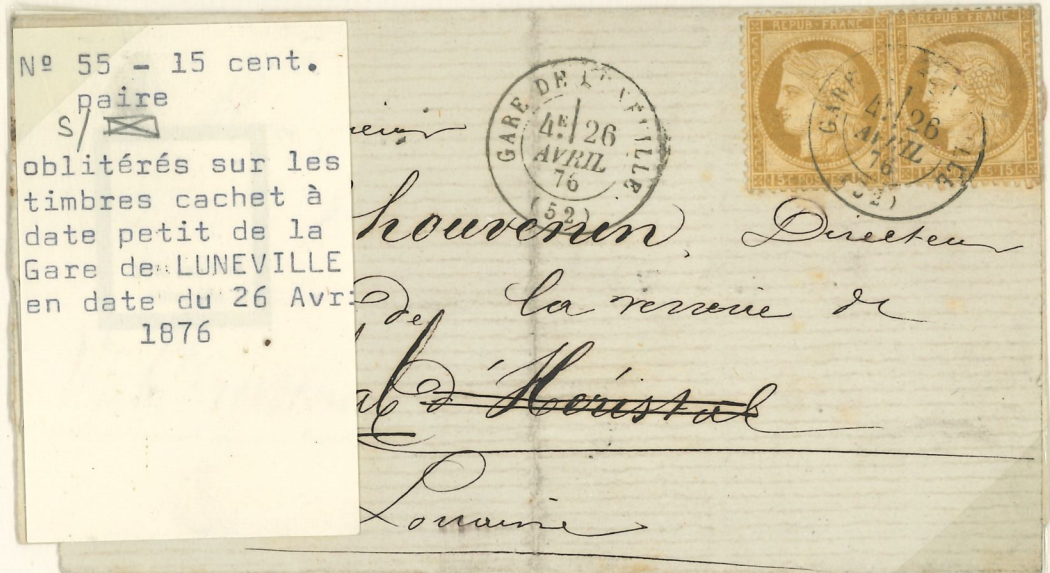 Nº 55 - 15 cent.
paire
S/
oblitérés sur les
timbres cachet à
date petit de la
Gare de LUNEVILLE
en date du 26 Avri
1876
GARE DE LUNÉVILLE
4E 26
AVRIL
76
(52)
REPUB FRANC
15 C POSTES
REPUB FRANC
15 C
GARE
4E 26
AVRIL
76
(52)
houvenin Directeur
de la verrerie de
al d'Héristal
Lorraine